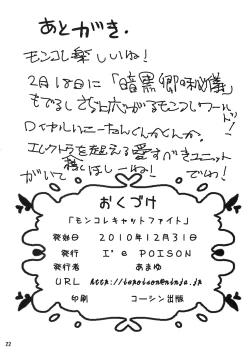 あとがき。
モンコレ楽しいね！
2月18日に「暗黒卿の秘儀」
もでるしさらに広がるモンコレワールド！
ロイヤルにーたんくんかくんか。
エレクトラを超える愛すべきユニット
がいて欲しーね！ でわ！
おくづけ
「モンコレキャットファイト」
発効日 2010年12月31日
発行 I'e POISON
発行者 あまゆ
URL
印刷 コーシン出版
22